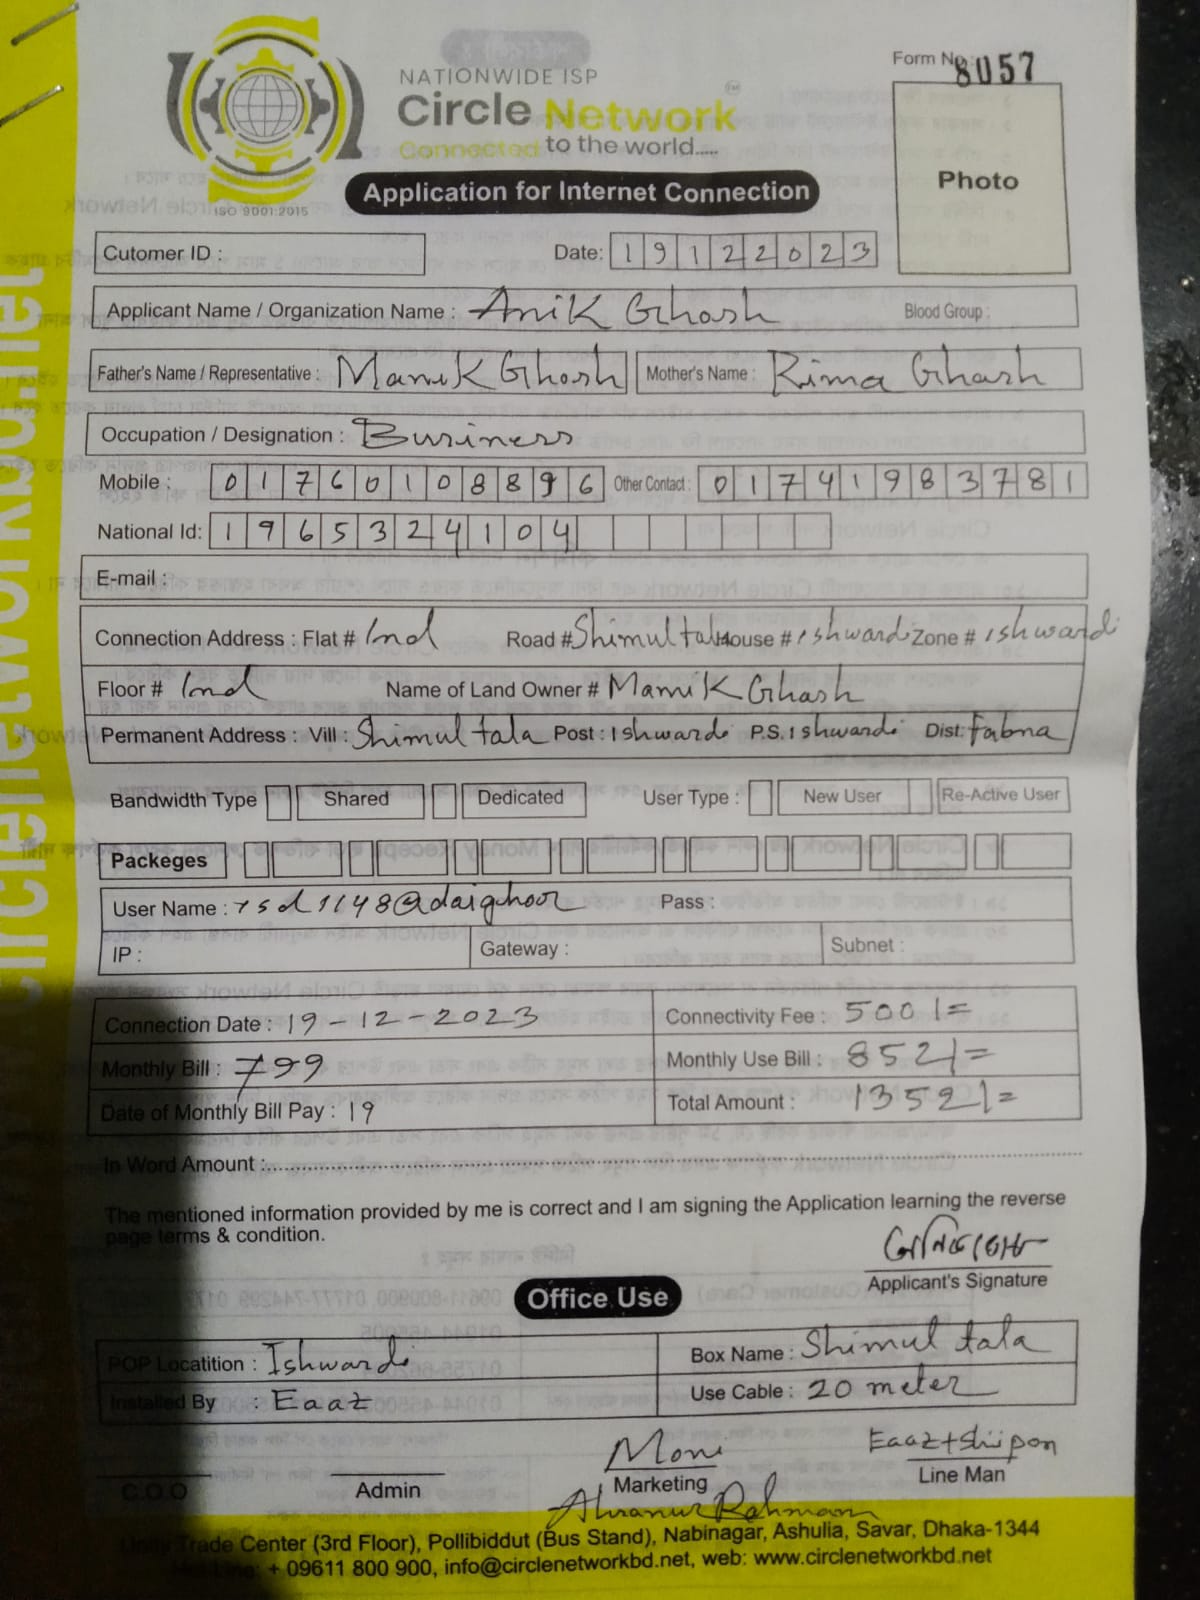 Form No : 8057
NATIONWIDE ISP
Circle Network TM
Connected to the world.....
ISO 9001:2015
Application for Internet Connection
Photo
Cutomer ID :
Date: 19122023
Applicant Name / Organization Name : Anik Ghosh Blood Group :
Father's Name / Representative : Manik Ghosh Mother's Name : Rima Ghosh
Occupation / Designation : Business
Mobile : 01760108896 Other Contact : 01741983781
National Id: 1965324104
E-mail :
Connection Address : Flat # Ind Road # Shimul tala House # Ishwardi Zone # Ishwardi
Floor # Ind Name of Land Owner # Manik Ghosh
Permanent Address : Vill : Shimul tala Post : Ishwardi P.S. Ishwardi Dist. Pabna
Bandwidth Type Shared Dedicated User Type : New User Re-Active User
Packeges
User Name : rsd1148@daighoor Pass :
IP : Gateway : Subnet :
Connection Date : 19-12-2023 Connectivity Fee : 500/=
Monthly Bill : 799 Monthly Use Bill : 852/=
Date of Monthly Bill Pay : 19 Total Amount : 1352/=
In Word Amount :
The mentioned information provided by me is correct and I am signing the Application learning the reverse
page terms & condition.
Applicant's Signature
Office Use
POP Locatition : Ishwardi Box Name : Shimul tala
Installed By : Eaaz Use Cable : 20 meter
Moni Eaaz+Shipon
C.O.O Admin Marketing Line Man
Rahman
Trade Center (3rd Floor), Pollibiddut (Bus Stand), Nabinagar, Ashulia, Savar, Dhaka-1344
+ 09611 800 900, info@circlenetworkbd.net, web: www.circlenetworkbd.net
circlenetworkbd.net